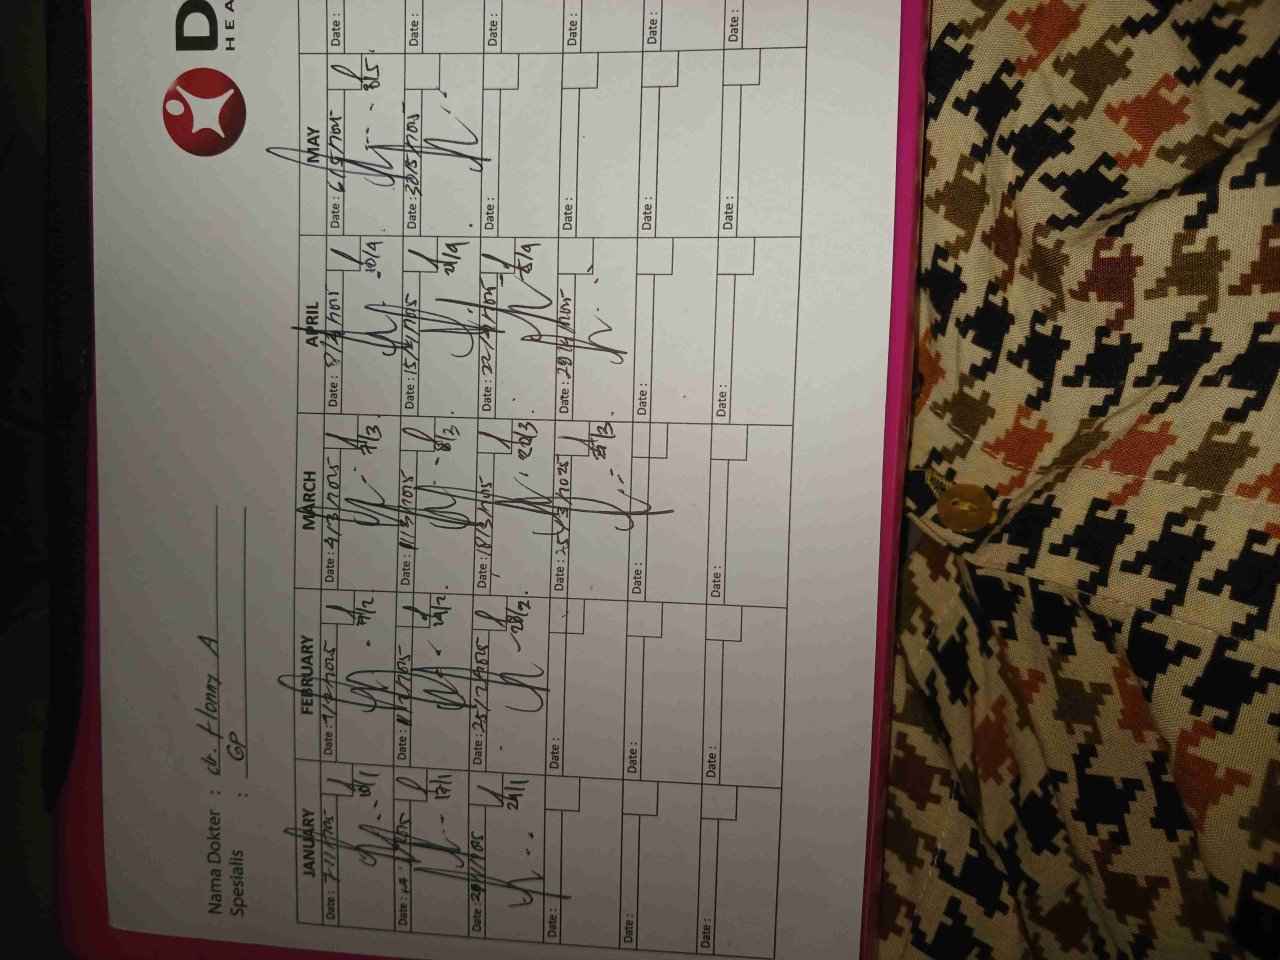 D
HEA
Nama Dokter : dr. Henny A
Spesialis : GP
JANUARY FEBRUARY MARCH APRIL MAY
Date: 7/1/2025 Date: 7/2/2025 Date: 4/3/2025 Date: 8/4/2025 Date: 6/5/2025 Date:
10/1 7/2 7/3. 10/4 8/5.
Date: Date: 11/2/2025 Date: 11/3/2025 Date: 15/4/2025 Date: 30/5/2025 Date:
17/1 14/2
Date: Date: 25/2/2025 Date: 18/3/2025 Date: 22/4/2025 Date: Date:
24/1 28/2.
Date: Date: Date: 25/3/2025 Date: 29/4/2025 Date: Date:
Date: Date: Date: Date: Date: Date:
Date: Date: Date: Date: Date: Date: